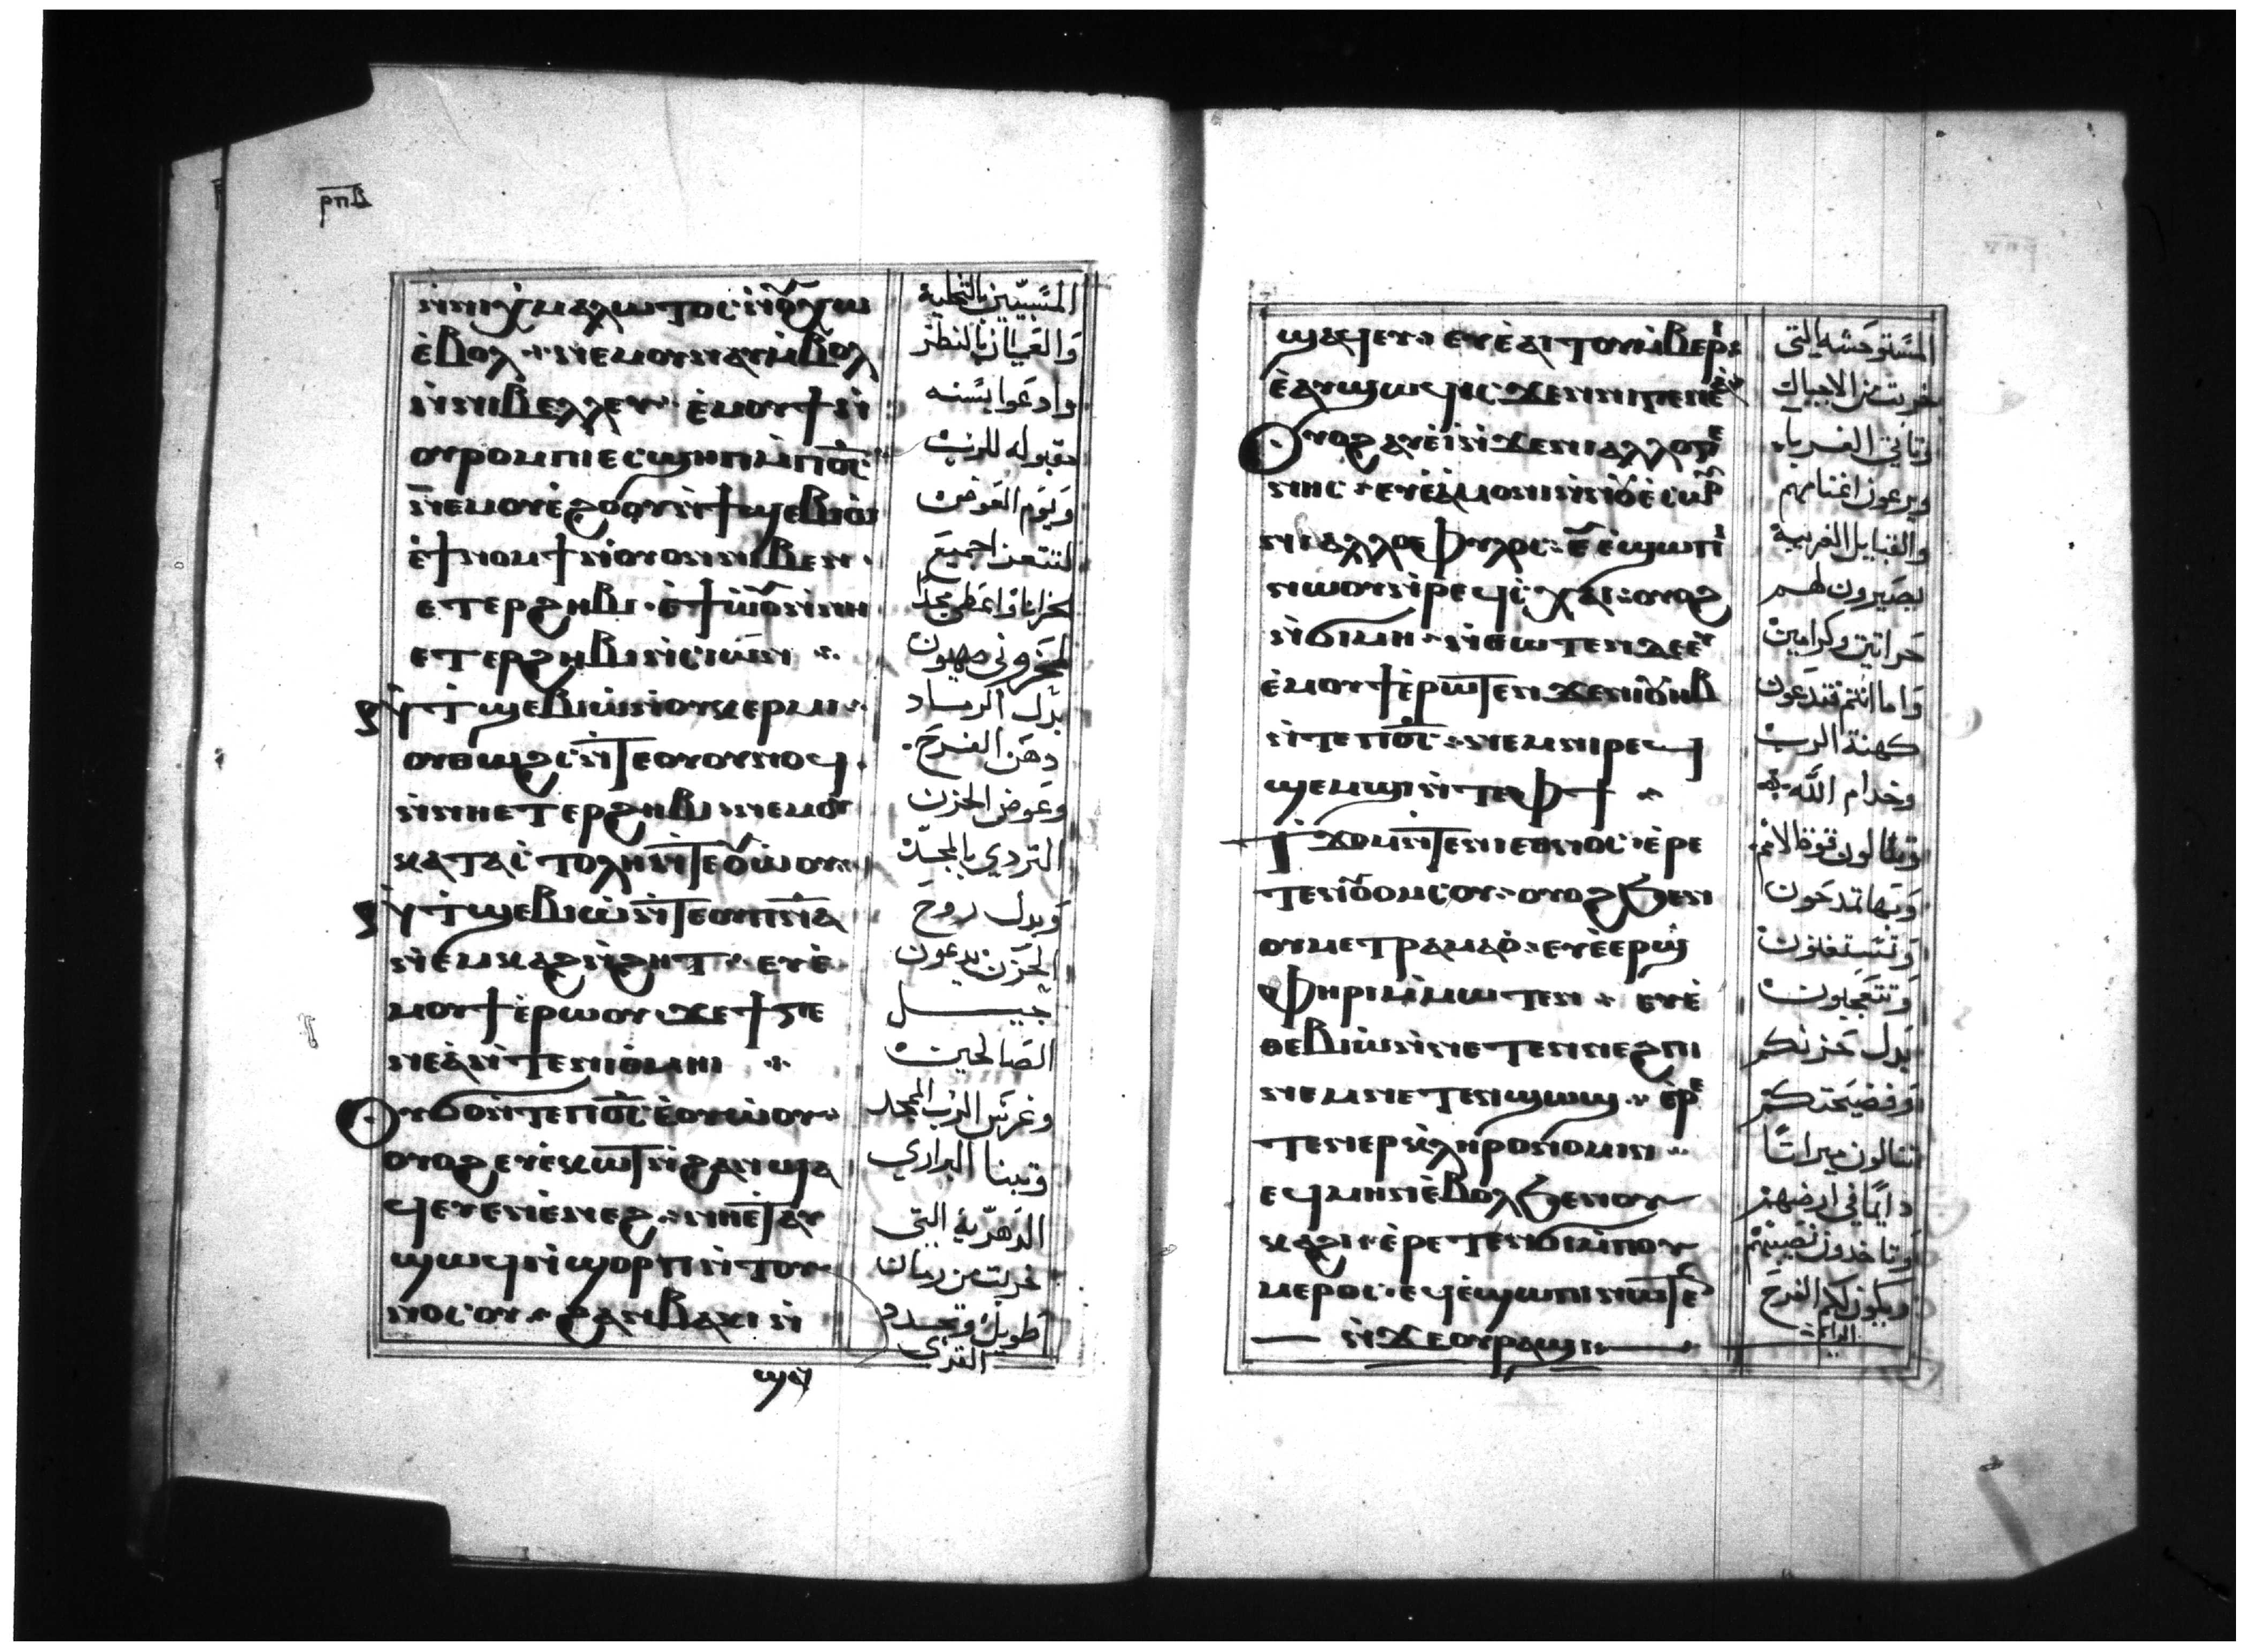 ⲣⲡⲃ
ⲛ̀ⲛⲓⲭ̀ⲙⲁⲗⲱⲧⲟⲥ ⲛ̀ⲟⲩⲭⲱ
ⲉ̀ⲃⲟⲗ · ⲛⲉⲙ ⲟⲩⲛⲁⲩ ⲙ̀ⲃⲟⲗ
ⲛ̀ⲛⲓⲃⲉⲗⲗⲉⲩ · ⲉ̀ⲙⲟⲩϯ ⲛ̀
ⲟⲩⲣⲟⲙⲡⲓ ⲉⲥϣⲏⲡ ⲙ̀ⲡⲟ̅ⲥ̅
ⲛⲉⲙ ⲟⲩⲉ̀ϩⲟⲟⲩ ⲛ̀ϯϣⲉⲃⲓⲱ
ⲉ̀ϯⲛⲟⲙϯ ⲛ̀ⲟⲩⲟⲛ ⲛⲓⲃⲉⲛ ·
ⲉⲧⲉⲣϩⲏⲃⲓ · ⲉ̀ϯⲱ̀ⲟⲩ ⲛ̀ⲛⲏ
ⲉⲧⲉⲣϩⲏⲃⲓ ⲛ̀ⲥⲓⲱⲛ
ⲛ̀ⲧϣⲉⲃⲓⲱ̀ ⲛ̀ⲟⲩⲕⲉⲣⲙⲓ
ⲟⲩⲑⲱϩⲥ ⲛ̀ⲧⲉ ⲟⲩⲟⲩⲛⲟϥ ·
ⲛ̀ⲛⲏ ⲉⲧⲉⲣϩⲏⲃⲓ ⲛⲉⲙ ⲟⲩ
ⲕⲁⲧⲁⲥⲧⲟⲗⲏ ⲛ̀ⲧⲉ ⲟⲩⲱ̀ⲟⲩ
ⲛ̀ⲧϣⲉⲃⲓⲱ̀ ⲛ̀ⲧⲉ ⲟⲩⲡ̅ⲛ̅ⲁ̅
ⲛ̀ⲉⲙⲕⲁϩ ⲛ̀ϩⲏⲧ · ⲉⲩⲉ̀
ⲙⲟⲩϯ ⲉ̀ⲣⲱⲟⲩ ϫⲉ ϯⲅⲉ
ⲛⲉⲁ̀ ⲛ̀ⲧⲉ ⲛⲓⲑ̀ⲙⲏⲓ
ⲟⲩϭⲟ ⲛ̀ⲧⲉ ⲡⲟ̅ⲥ̅ ⲉ̀ⲟⲩⲱ̀ⲟⲩ
ⲟⲩⲟϩ ⲉⲩⲉ̀ⲕⲱⲧ ⲛ̀ϩⲁⲛϣⲁ
ϥⲉⲩ ⲉ̀ⲛⲉ̀ⲛⲉϩ · ⲛⲏ ⲉ̀ⲧⲁⲩ
ϣⲱϥ ⲛ̀ϣⲟⲣⲡ ⲛ̀ⲧⲟⲩ
ⲛⲟⲥⲟⲩ · ϩⲁⲛⲃⲁⲕⲓ ⲛ̀
ϣⲁ
المسبيين بالتخلية
والعميان بالنظر
وادعوا بسنه
مقبوله للرب
ويوم العوض
لتتعزا جميع
الحزانا واعطي مجدا
لمحزوني صهيون
بدل الرماد
دهن الفرح
وعوض الحزن
التردي بالمجد
وبدل روح
الحزن يدعون
جيــــل
الصالحين
وغرس الرب المجد
وتبنا البراري
الدهرية التي
خربت من زمان
طويل وتجدد
القرى
ϣⲁϥⲉⲩ · ⲉⲩⲉ̀ⲁⲓⲧⲟⲩ ⲙ̀ⲃⲉⲣⲓ
ⲉ̀ⲁⲩϣⲱϥ ⲓⲥϫⲉⲛ ⲛⲓⲅⲉⲛⲉⲁ̀
ⲟⲩⲟϩ ⲁⲩⲉ̀ⲓ̀ ⲛ̀ϫⲉ ⲛⲓⲁⲗⲗⲟⲅⲉ
ⲛⲏⲥ · ⲉⲩⲉ̀ⲁ̀ⲙⲟⲛⲓ ⲛ̀ⲛⲟⲩⲉ̀ⲥⲱⲟⲩ
ⲛⲓⲁⲗⲗⲟⲉⲫⲩⲗⲟⲥ · ⲉⲩⲉ̀ϣⲱⲡⲓ
ⲛⲱⲟⲩ ⲛ̀ⲣⲉϥⲥ̀ⲭⲁⲓ · ⲟⲩⲟϩ
ⲛ̀ϭⲙⲏ · ⲛ̀ⲑⲱⲧⲉⲛ ⲇⲉ ⲉⲩ
ⲉ̀ⲙⲟⲩϯ ⲉ̀ⲣⲱⲧⲉⲛ ϫⲉ ⲛⲓⲟⲩⲏⲃ
ⲛ̀ⲧⲉ ⲡⲟ̅ⲥ̅ · ⲛⲉⲙ ⲛⲓⲣⲉϥ
ϣⲉⲙϣⲓ ⲛ̀ⲧⲉ ⲫϯ
ⲧϫⲟⲙ ⲛ̀ⲧⲉ ⲛⲓⲉⲑⲛⲟⲥ · ⲉ̀ⲣⲉ
ⲧⲉⲛⲟⲩⲟⲙⲥⲟⲩ · ⲟⲩⲟϩ ϧⲉⲛ
ⲟⲩⲙⲉⲧⲣⲁⲙⲁⲟ̀ · ⲉⲩⲉ̀ⲉⲣϣ
ⲫⲏⲣⲓ ⲙ̀ⲙⲱⲧⲉⲛ · ⲉⲩⲉ̀
ⲑⲉⲃⲓⲱ̀ ⲛ̀ⲛⲉⲧⲉⲛϩⲏⲃⲓ
ⲛⲉⲙ ⲛⲉⲧⲉⲛϣⲱϣ · ⲉ̀ⲣⲉ
ⲧⲉⲛⲉⲣⲕ̀ⲗⲏⲣⲟⲛⲟⲙⲓⲛ
ⲉϥⲙⲏⲛ ⲉ̀ⲃⲟⲗ ϧⲉⲛ ⲟⲩ
ⲕⲁϩⲓ · ⲉ̀ⲣⲉⲧⲉⲛϭⲓ ⲙ̀ⲡⲟⲩ
ⲙⲉⲣⲟⲥ · ⲉϥⲉ̀ϣⲱⲡⲓ ⲛⲱⲧⲉⲛ
ⲛ̀ϫⲉ ⲟⲩⲣⲁϣⲓ
المستوحشه التي
خربت من الاجيال
وتاتي الغربا
ويرعون اغنامهم
والقبايل الغريبة
يصيرون لهم
حراثين وكرامين
واما انتم فتدعون
كهنة الرب
وخدام الله
وتاكلون قوة الامم
وتستغنون
وتتعجبون
بدل حزنكم
وفضيحتكم
تنالون ميراثا
دايما في ارضهم
وتاخدون نصيبهم
ويكون لكم الفرح